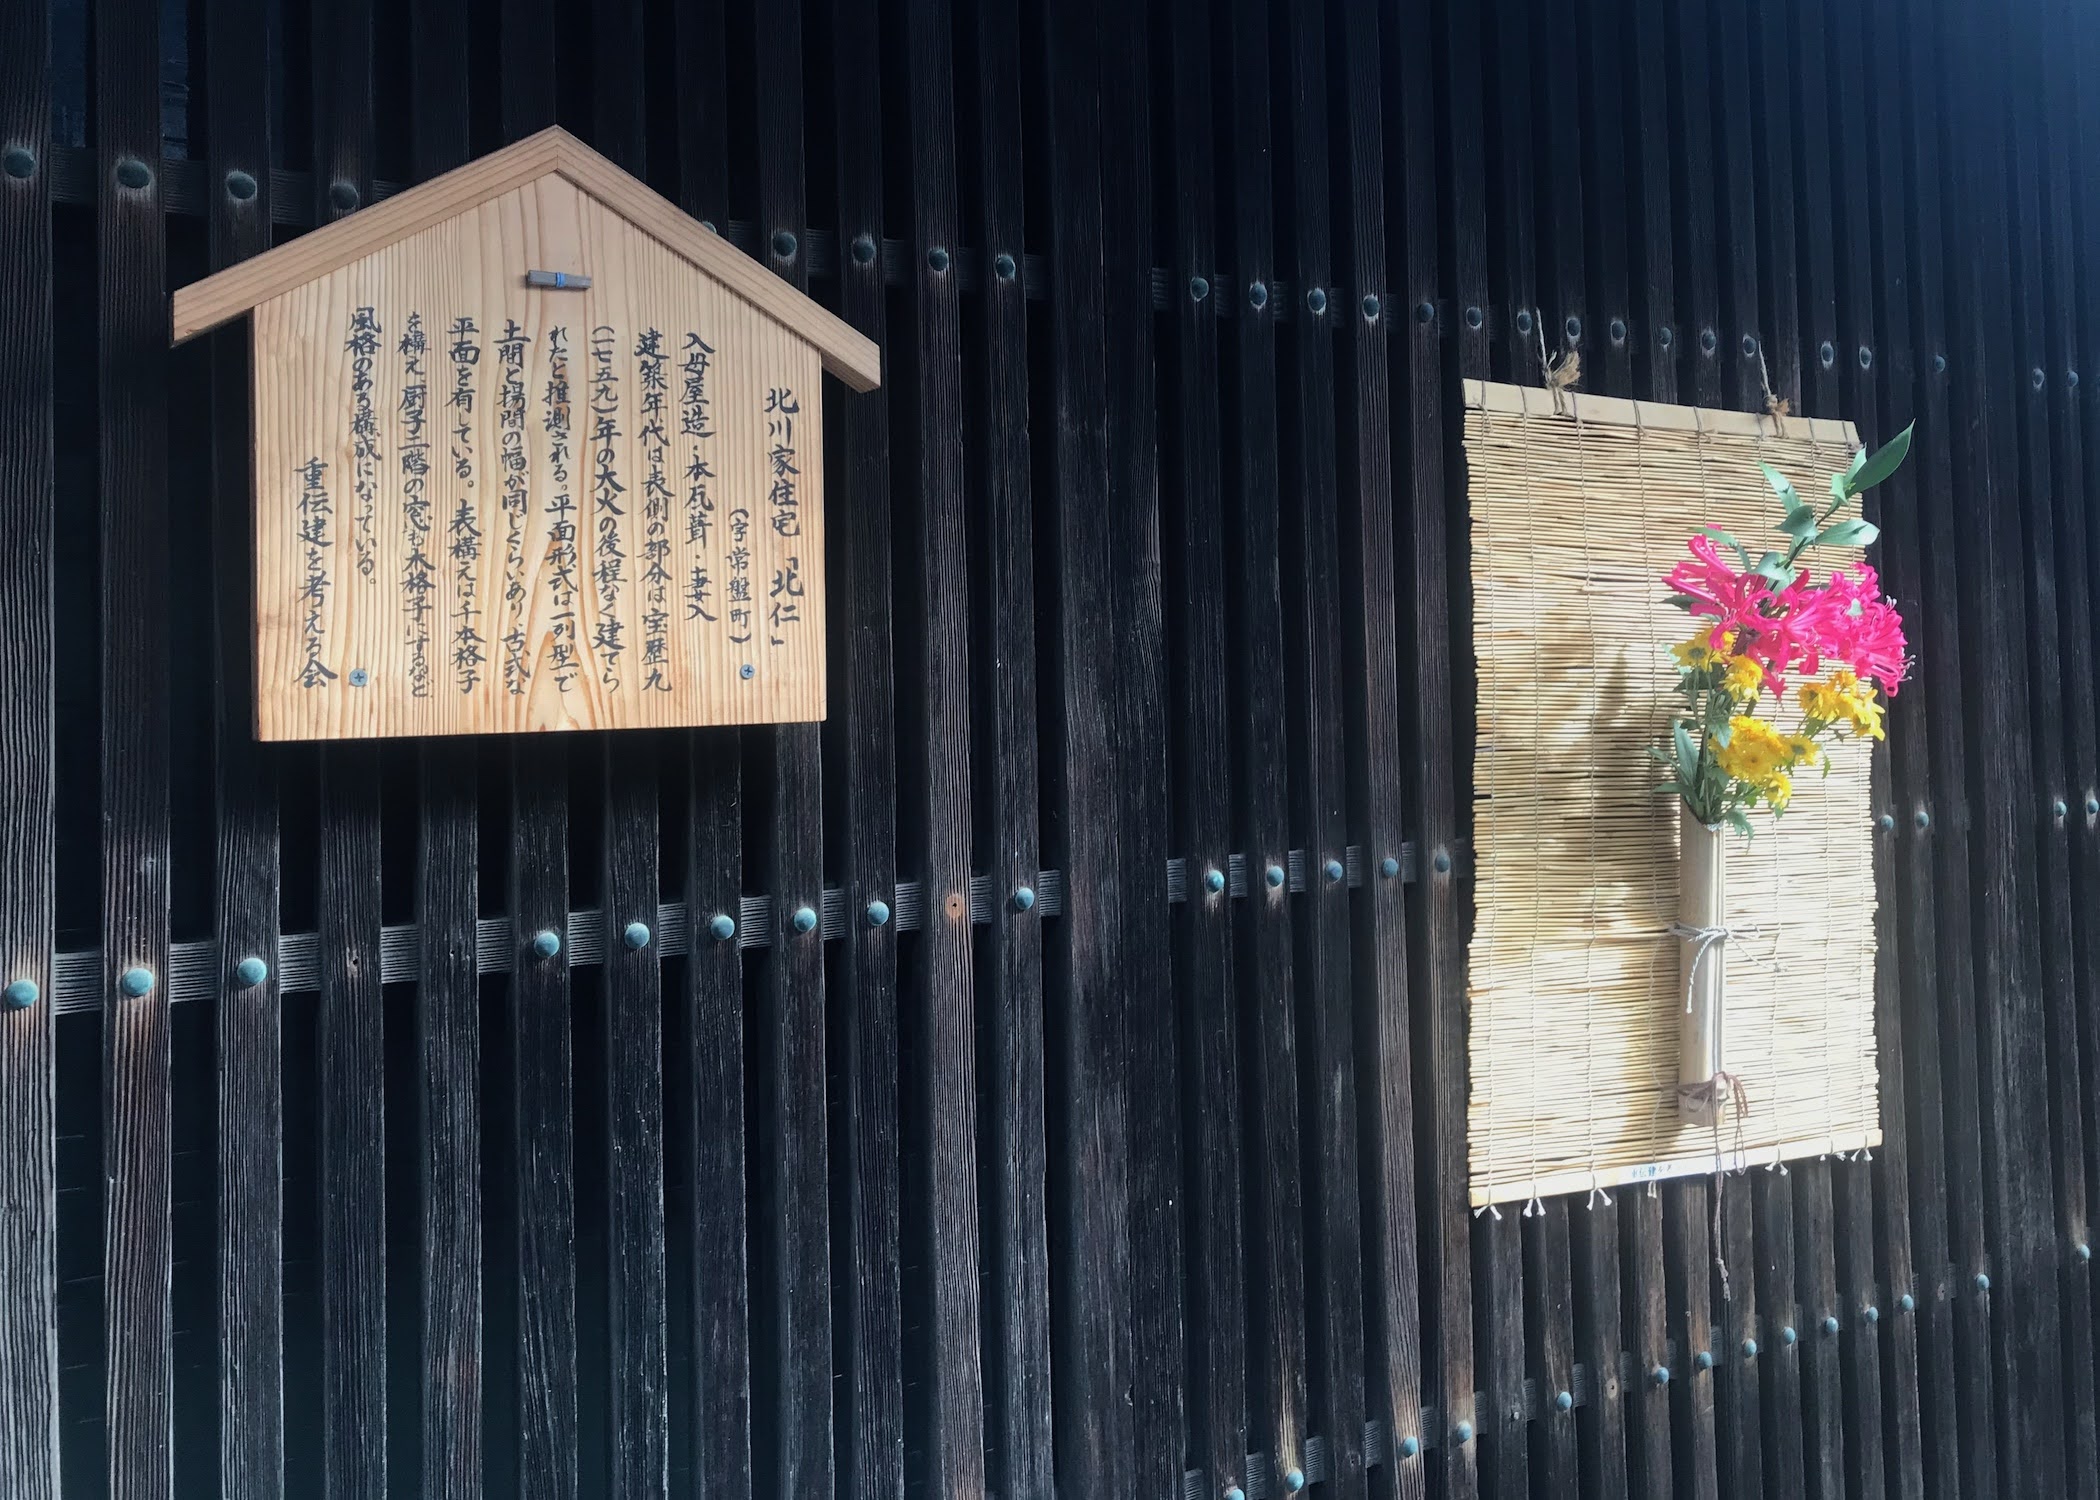 北川家住宅「北仁」
(字常盤町)
入母屋造・本瓦葺・妻入
建築年代は表側の部分は宝歴九
(一七五九)年の大火の後程なく建てら
れたと推測される。平面形式は一列型で
土間と揚間の幅が同じくらいあり、古式な
平面を有している。表構えは千本格子
を構え、厨子二階の窓も木格子にするなど
風格のある構成になっている。
重伝建を考える会